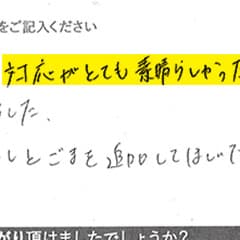 をご記入ください
対応がとても素晴らしかった
した、
しとごまを追加してほしい
がり頂けましたでしょうか？